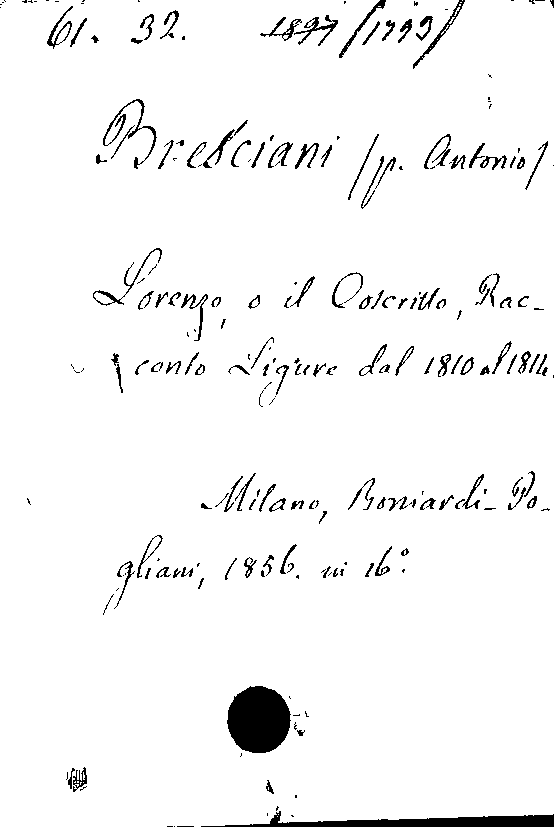 61. 32. 1897 /1793/
Bresciani /p. Antonio/.
Lorenzo, o il Coscritto, Rac-
conto Ligure dal 1810 al 1814.
Milano, Boniardi-Po-
gliani, 1856. in 16°.